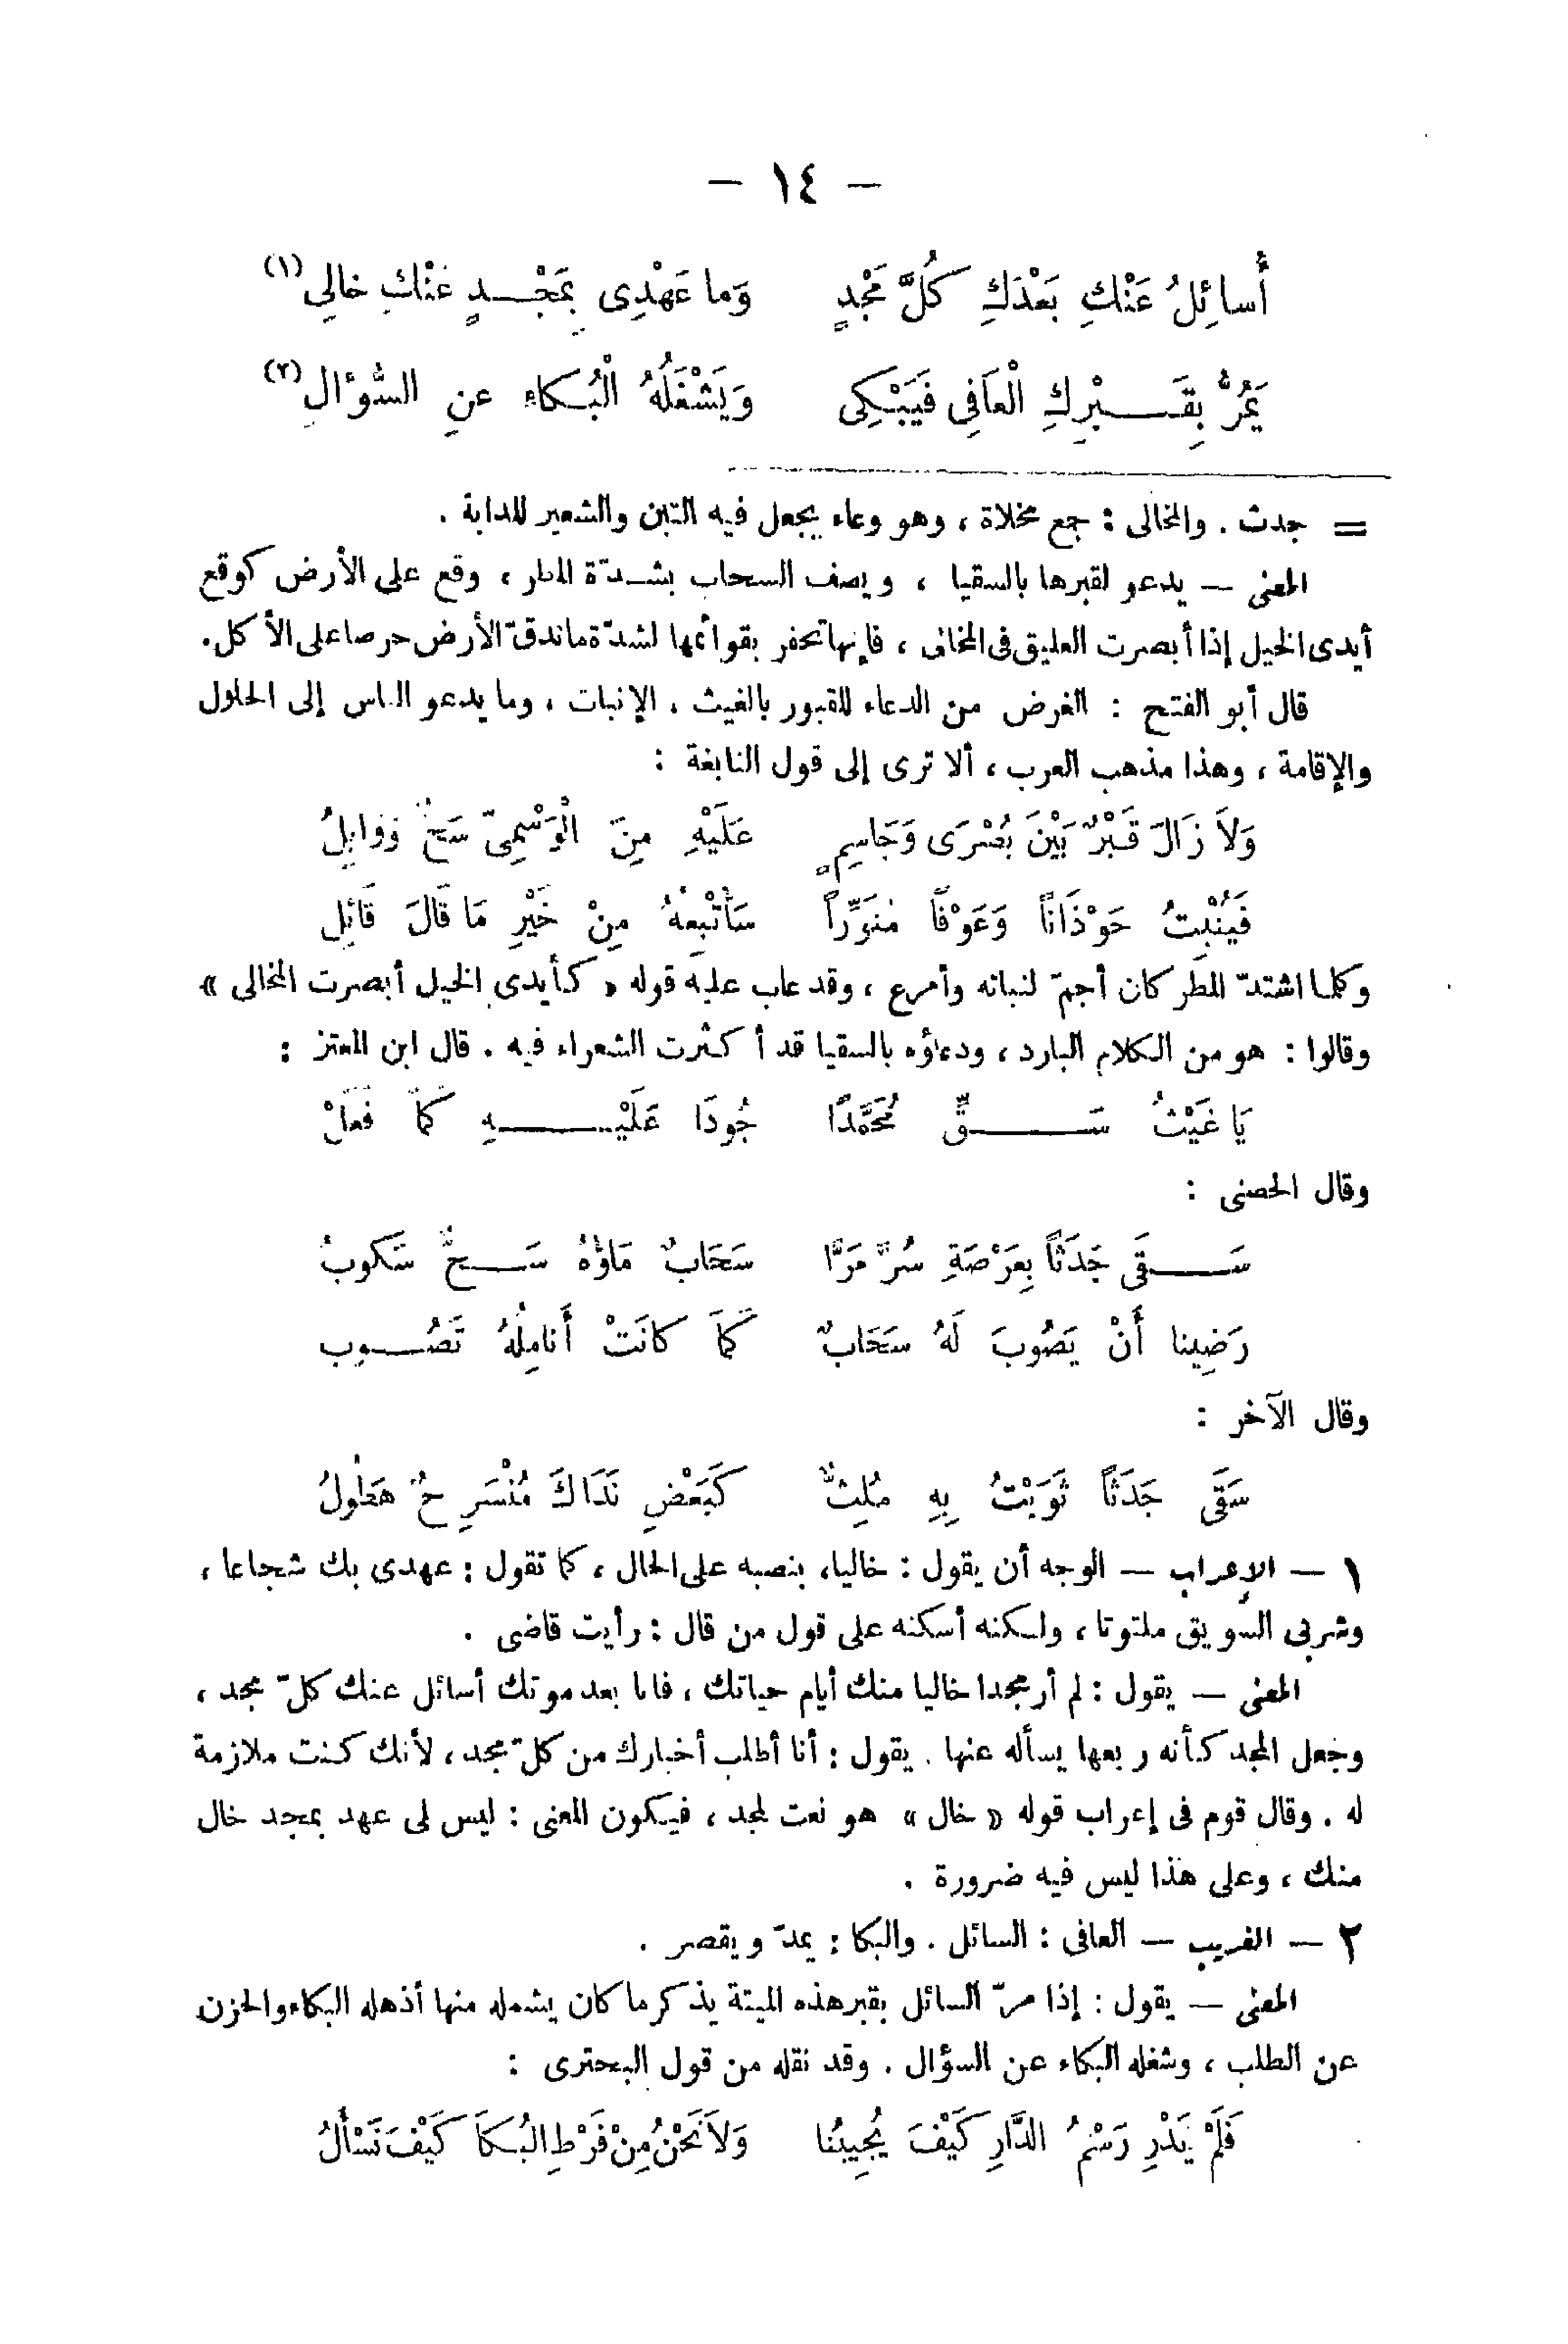 — ١٤ —
أُسائِلُ عَنْكِ بَعْدَكِ كُلَّ مَجْدٍ وَما عَهْدِى بِمَجْدٍ عَنْكِ خالِى (١)
يَمُرُّ بِقَبْرِكِ الْعَافِى فَيَبْكِى وَيَشْغَلُهُ الْبُكاءِ عنِ السُّؤالِ (٢)
= جدث . والمخالى : جمع مخلاة ، وهو وعاء يجعل فيه التبن والشعير للدابة .
المعنى — يدعو لقبرها بالسقيا ، ويصف السحاب بشدّة المطر ، وقع على الأرض كوقع
أيدى الخيل إذا أبصرت العليق فى المخالى ، فإنها تحفر بقوائمها لشدّة ماتدقّ الأرض حرصا على الأكل.
قال أبو الفتح : الغرض من الدعاء للقبور بالغيث . الإنبات ، وما يدعو الناس إلى الحلول
والإقامة ، وهذا مذهب العرب ، ألا ترى إلى قول النابغة :
وَلاَ زَالَ قَبْرٌ بَيْنَ بُصْرَى وَجَاسِمٍ عَلَيْهِ مِنَ الْوَسْمِىّ سَحٌّ وَوَابِلُ
فَيُنْبِتُ حَوْذَاناً وَعَوْفًا مُنَوِّراً سَأُتْبِعُهُ مِنْ خَيْرِ مَا قَالَ قَائِل
وكلما اشتدّ المطر كان أجمّ لنباته وأمرع ، وقد عاب عليه قوله « كأيدى الخيل أبصرت المخالى »
وقالوا : هو من الكلام البارد ، ودعاؤه بالسقيا قد أكثرت الشعراء فيه . قال ابن المعتز :
يَا غَيْثُ سَقِّ مُحَمَّدًا جُودَا عَلَيْهِ كَمَا فَعَلْ
وقال الحصنى :
سَقَى جَدَثاً بِعَرْصَةِ سُرَّ مَرَّا سَحَابٌ مَاؤُهُ سَحٌّ سَكوبُ
رَضِينا أَنْ يَصُوبَ لَهُ سَحَابٌ كَمَا كانَتْ أَنامِلُهُ تَصُوب
وقال الآخر :
سَقَى جَدَثاً ثَوَيْتُ بِهِ مُلِثٌّ كَبَعْضِ نَدَاكَ مُنْسَرِحٌ هَطُولُ
١ — الإعراب — الوجه أن يقول : خاليا، بنصبه على الحال ، كما تقول : عهدى بك شجاعا ،
وشربى السويق ملتوتا ، ولكنه أسكنه على قول من قال : رأيت قاضى .
المعنى — يقول : لم أر مجدا خاليا منك أيام حياتك ، فانا بعد موتك أسائل عنك كلّ مجد ،
وجعل المجد كأنه ربعها يسأله عنها . يقول : أنا أطلب أخبارك من كلّ مجد ، لأنك كنت ملازمة
له . وقال قوم فى إعراب قوله « خال » هو نعت لمجد ، فيكون المعنى : ليس لى عهد بمجد خال
منك ، وعلى هذا ليس فيه ضرورة .
٢ — الغريب — العافى : السائل . والبكا : يمدّ ويقصر .
المعنى — يقول : إذا مرّ السائل بقبر هذه الميتة يذكر ما كان يشمله منها أذهله البكاء والحزن
عن الطلب ، وشغله البكاء عن السؤال . وقد نقله من قول البحترى :
فَلَمْ يَدْرِ رَسْمُ الدَّارِ كَيْفَ يُجِيبُنا وَلاَ نَحْنُ مِنْ فَرْطِ الْبُكَا كَيْفَ نَسْأَلُ